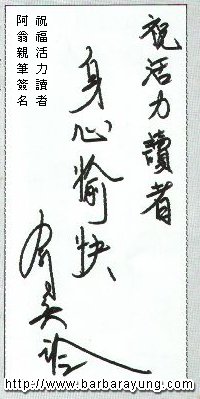 祝活力讀者
身心愉快
翁美玲
祝福活力讀者
阿翁親筆簽名
http://www.barbarayung.com